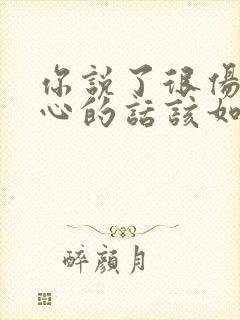 你説了很傷
心的話該如
醉顏月